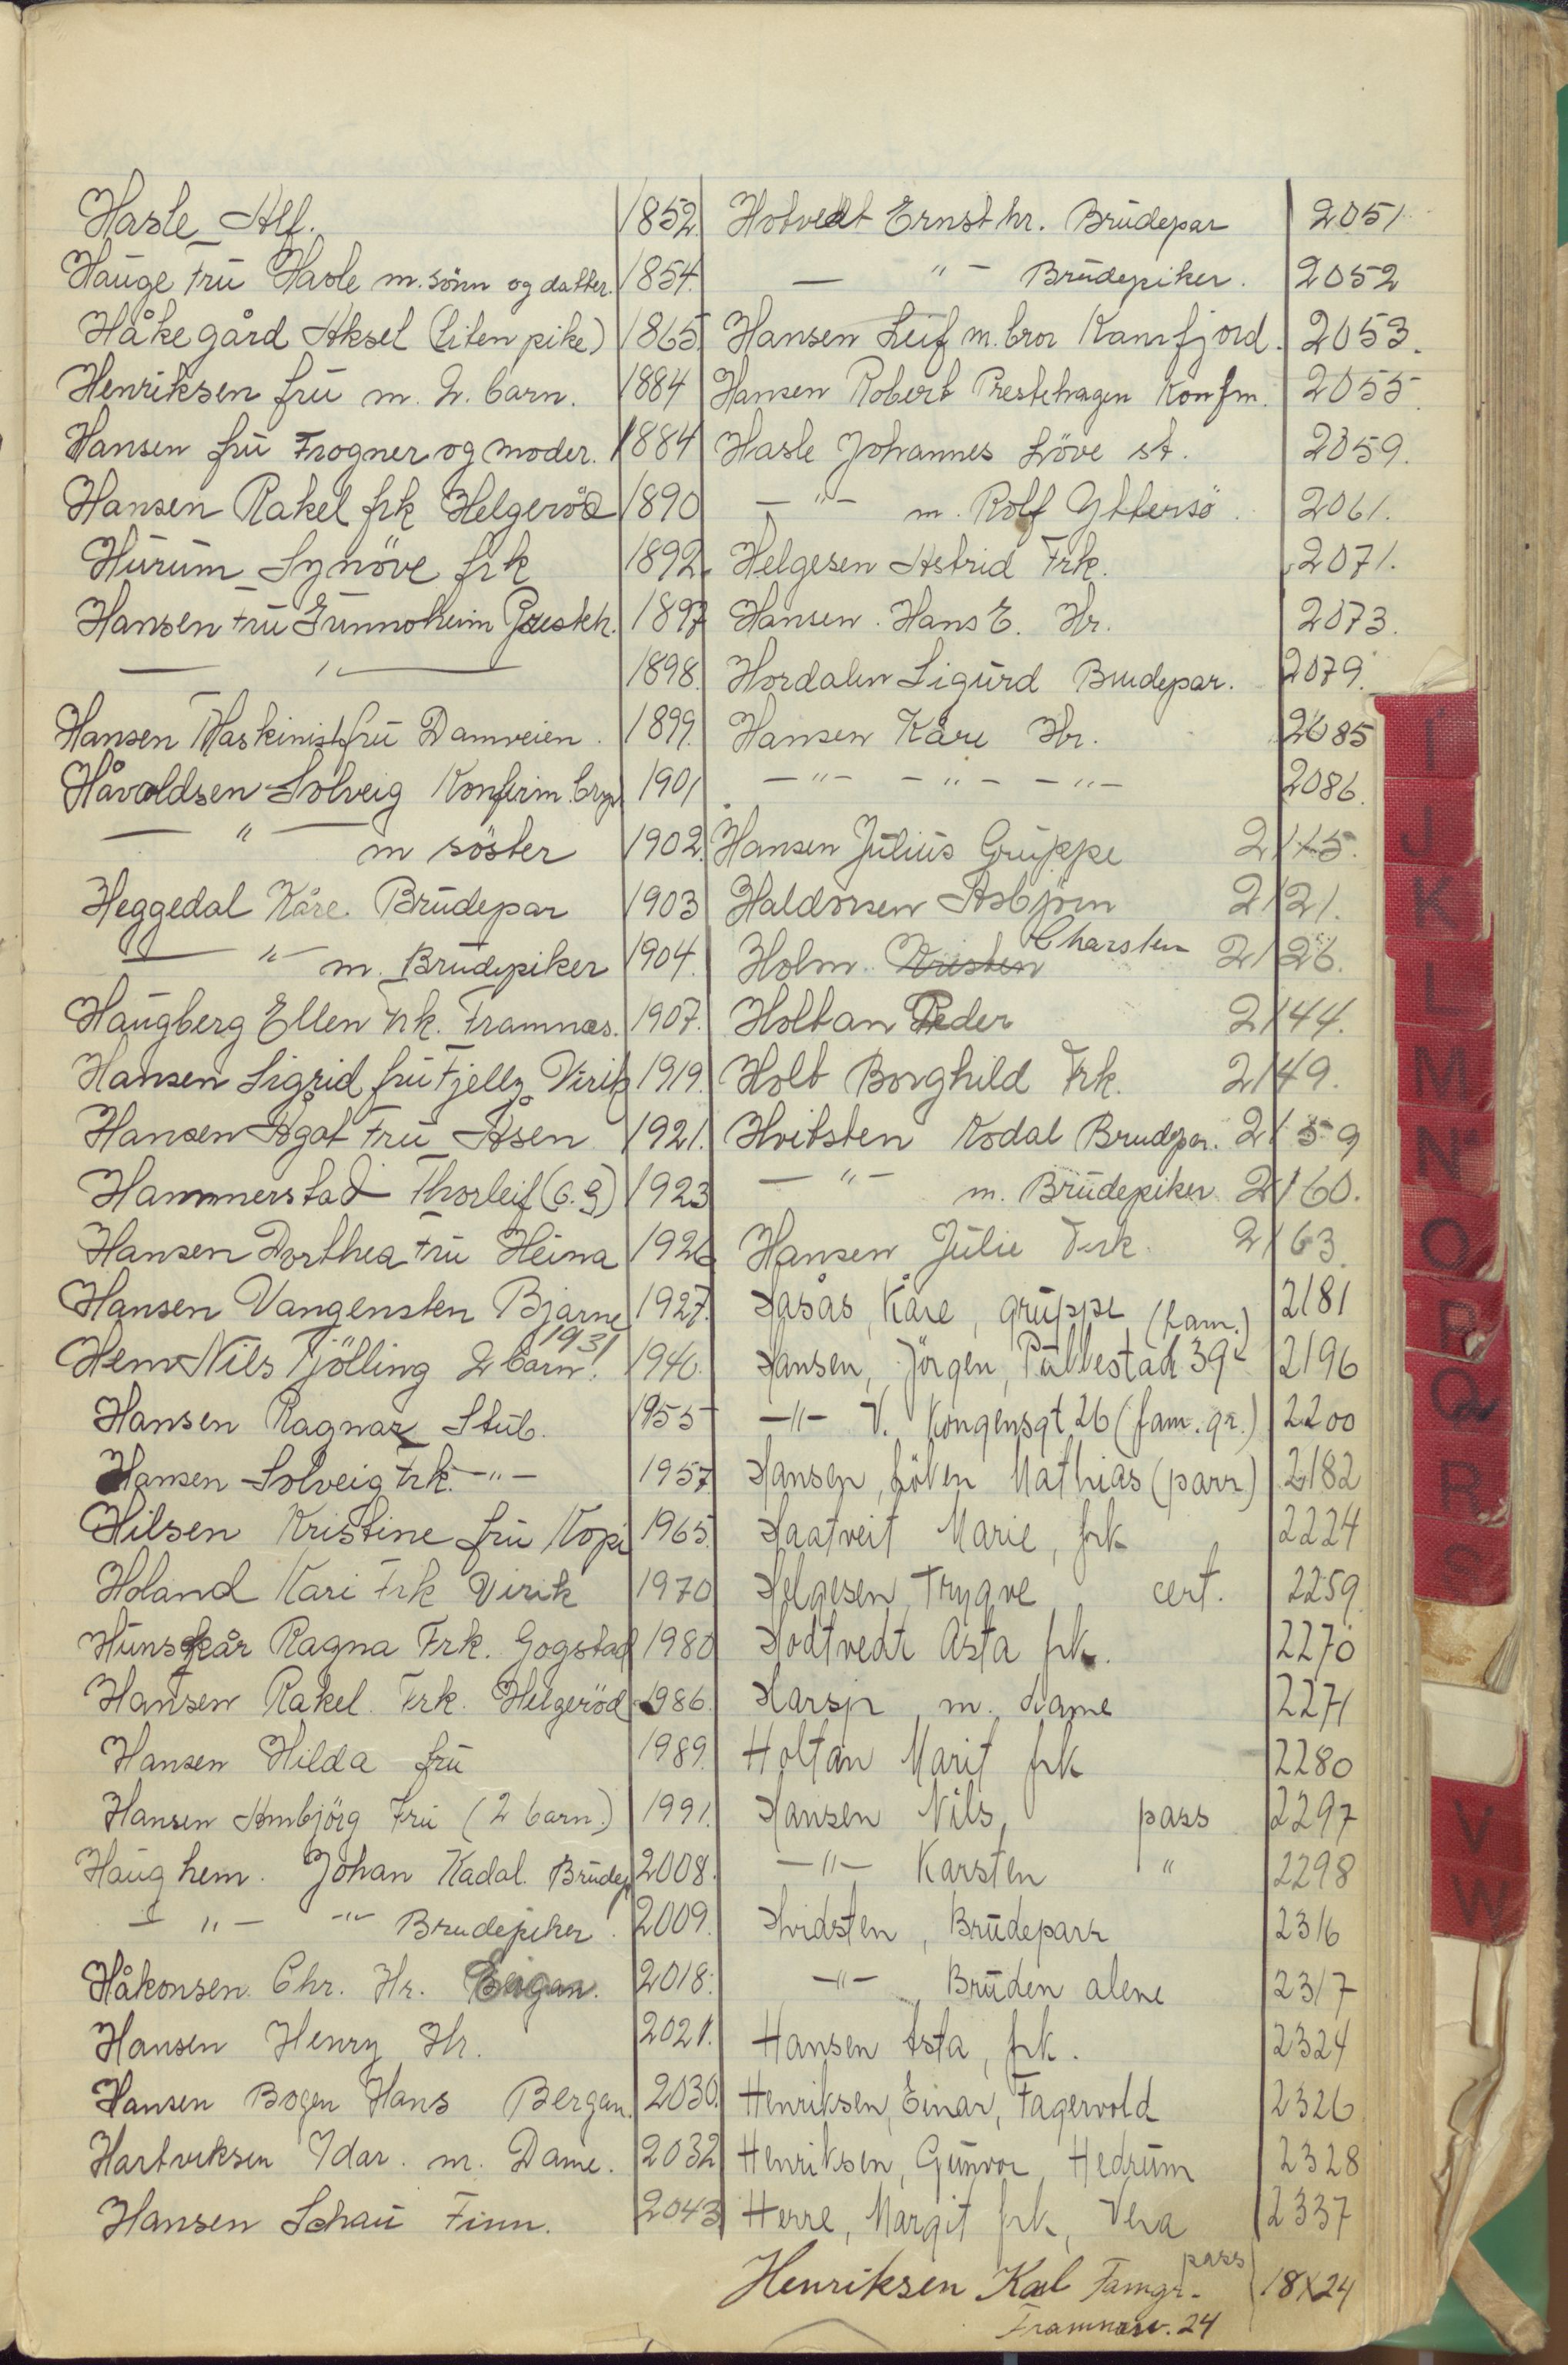 Hasle Alf. 1852.
Hauge Fru Hasle m. sönn og datter. 1854.
Håkegård Aksel (liten pike) 1865.
Henriksen fru m. 2. barn. 1884
Hansen fru Frogner og moder. 1884
Hansen Rakel frk Helgeröd 1890
Hurum Synöve frk 1892.
Hansen Fru Gunnoheim Presteh. 1897
— " — 1898.
Hansen Maskinist fru Damveien. 1899.
Håvoldsen Solveig Konfirm. 1901
— " — m söster 1902.
Heggedal Kåre Brudepar 1903
— " — m. Brudepiker 1904.
Haugberg Ellen Frk. Framnæs. 1907.
Hansen Sigrid fru Fjellg Virik 1919.
Hansen Agot Fru Åsen 1921.
Hammerstad Thorleif (6.9) 1923
Hansen Dorthea Fru Heina 1926
Hansen Vangensten Bjarne 1927.
1931
Hem Nils Tjölling 2 barn! 1940.
Hansen Ragnar Stub. 1955
Hansen Solveig Frk. -"- 1957
Hilsen Kristine fru Kopi 1965.
Holand Kari Frk Virik 1970
Hunskår Ragna Frk. Gogstad 1980
Hansen Rakel Frk. Helgeröd 1986.
Hansen Hilda fru 1989.
Hansen Ambjörg Fru (2 barn.) 1991.
Haughem. Johan Kadal. Brudep 2008.
— " — -"- Brudepiker. 2009.
Håkonsen Chr. Hr. Bergan. 2018.
Hansen Henry Hr. 2021.
Hansen Bogen Hans Bergan. 2030.
Hartviksen Idar. m. Dame. 2032
Hansen Schau Finn. 2043
Hotvedt Ernst hr. Brudepar 2051
— " — Brudepiker. 2052
Hansen Leif m. bror Kamfjord. 2053.
Hansen Robert Prestehagen Konfm. 2055.
Hasle Johannes Löve st. 2059.
— " — m. Rolf Yttersö. 2061.
Helgesen Astrid Frk. 2071.
Hansen. Hans E. Hr. 2073.
Hordalen Sigurd Brudepar. 2079.
Hansen Kåre Hr. 2085
-"- -"- -"- 2086.
Hansen Julius Gruppe 2115.
Haldorsen Asbjörn 2121.
Holm Kristen Charsten 2126.
Holtan Peder 2144.
Holt Borghild Frk. 2149.
Hvitsten Kodal Brudepar. 2159
— " — m. Brudepiker 2160.
Hansen Julie Frk. 2163.
Hasås, Kåre, gruppe (fam.) 2181
Hansen, Jörgen, Pukkestad 39 2196
-"- V. Kongensgt 26 (fam. gr.) 2200
Hansen, Löken Mathias (parr) 2182
Haatveit Marie, frk 2224
Helgesen, Trygve cert. 2259
Hodtvedt Asta frk. 2270
Harsjr m. dame 2271
Holtan Marit frk 2280
Hansen Nils, pass 2297
-"- Karsten " 2298
Hvidsten, Brudeparr 2316
-"- Bruden alene 2317
Hansen Asta, frk. 2324
Henriksen, Einar, Fagervold 2326
Henriksen, Gunvor, Hedrum 2328
Herre, Margit frk, Vera 2337
Henriksen Karl Famgr. pass 18X24
Framnæsv. 24
I
J
K
L
M
N
O
P
Q
R
S
V
W